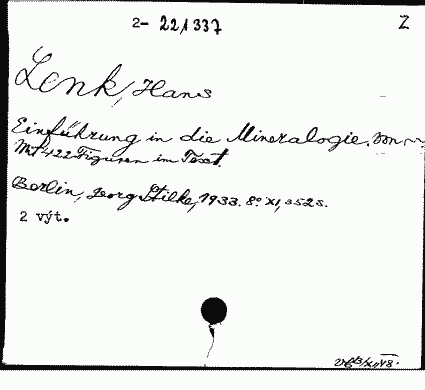 2- 221337
Z
Lenk, Hans
Einführung in die Mineralogie. Von ~
Mit 422 Figuren im Text.
Berlin, Georg Stilke, 1933. 8° XI, 352 s.
2 výt.